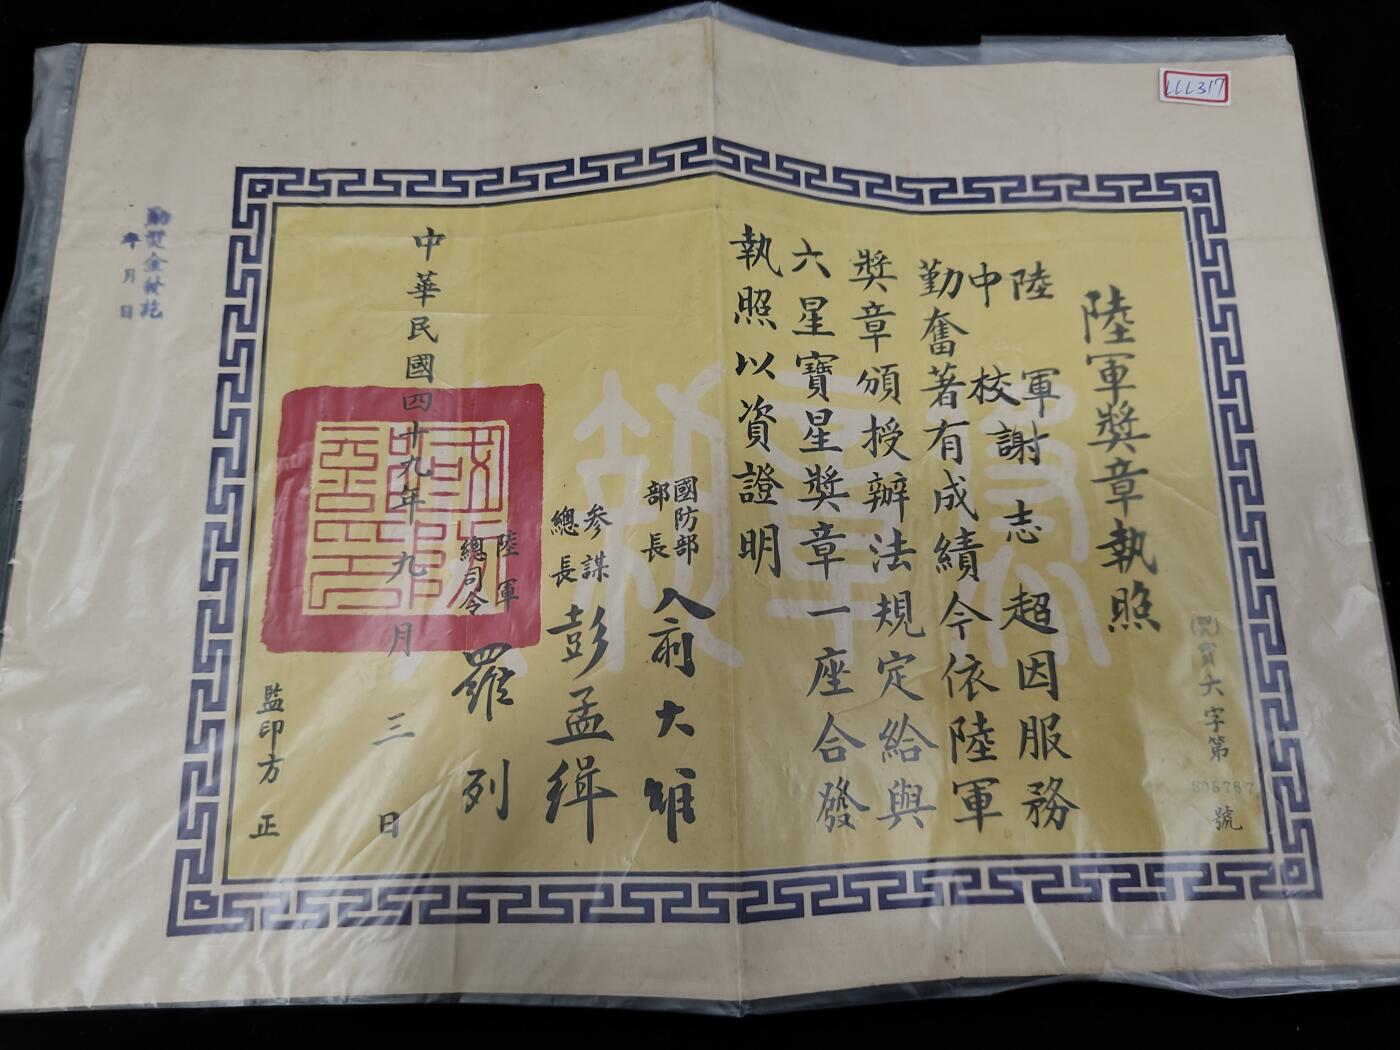 LLL317
陸軍獎章執照
(四九)寶六字第
606767
號
陸軍
中校謝志超因服務
勤奮著有成績今依陸軍
獎章頒授辦法規定給與
六星寶星獎章一座合發
執照以資證明
國防部
部長
俞大維
參謀
總長
彭孟緝
陸軍
總司令
羅列
中華民國四十九年九月三日
監印方正
勳獎金發訖
年月日